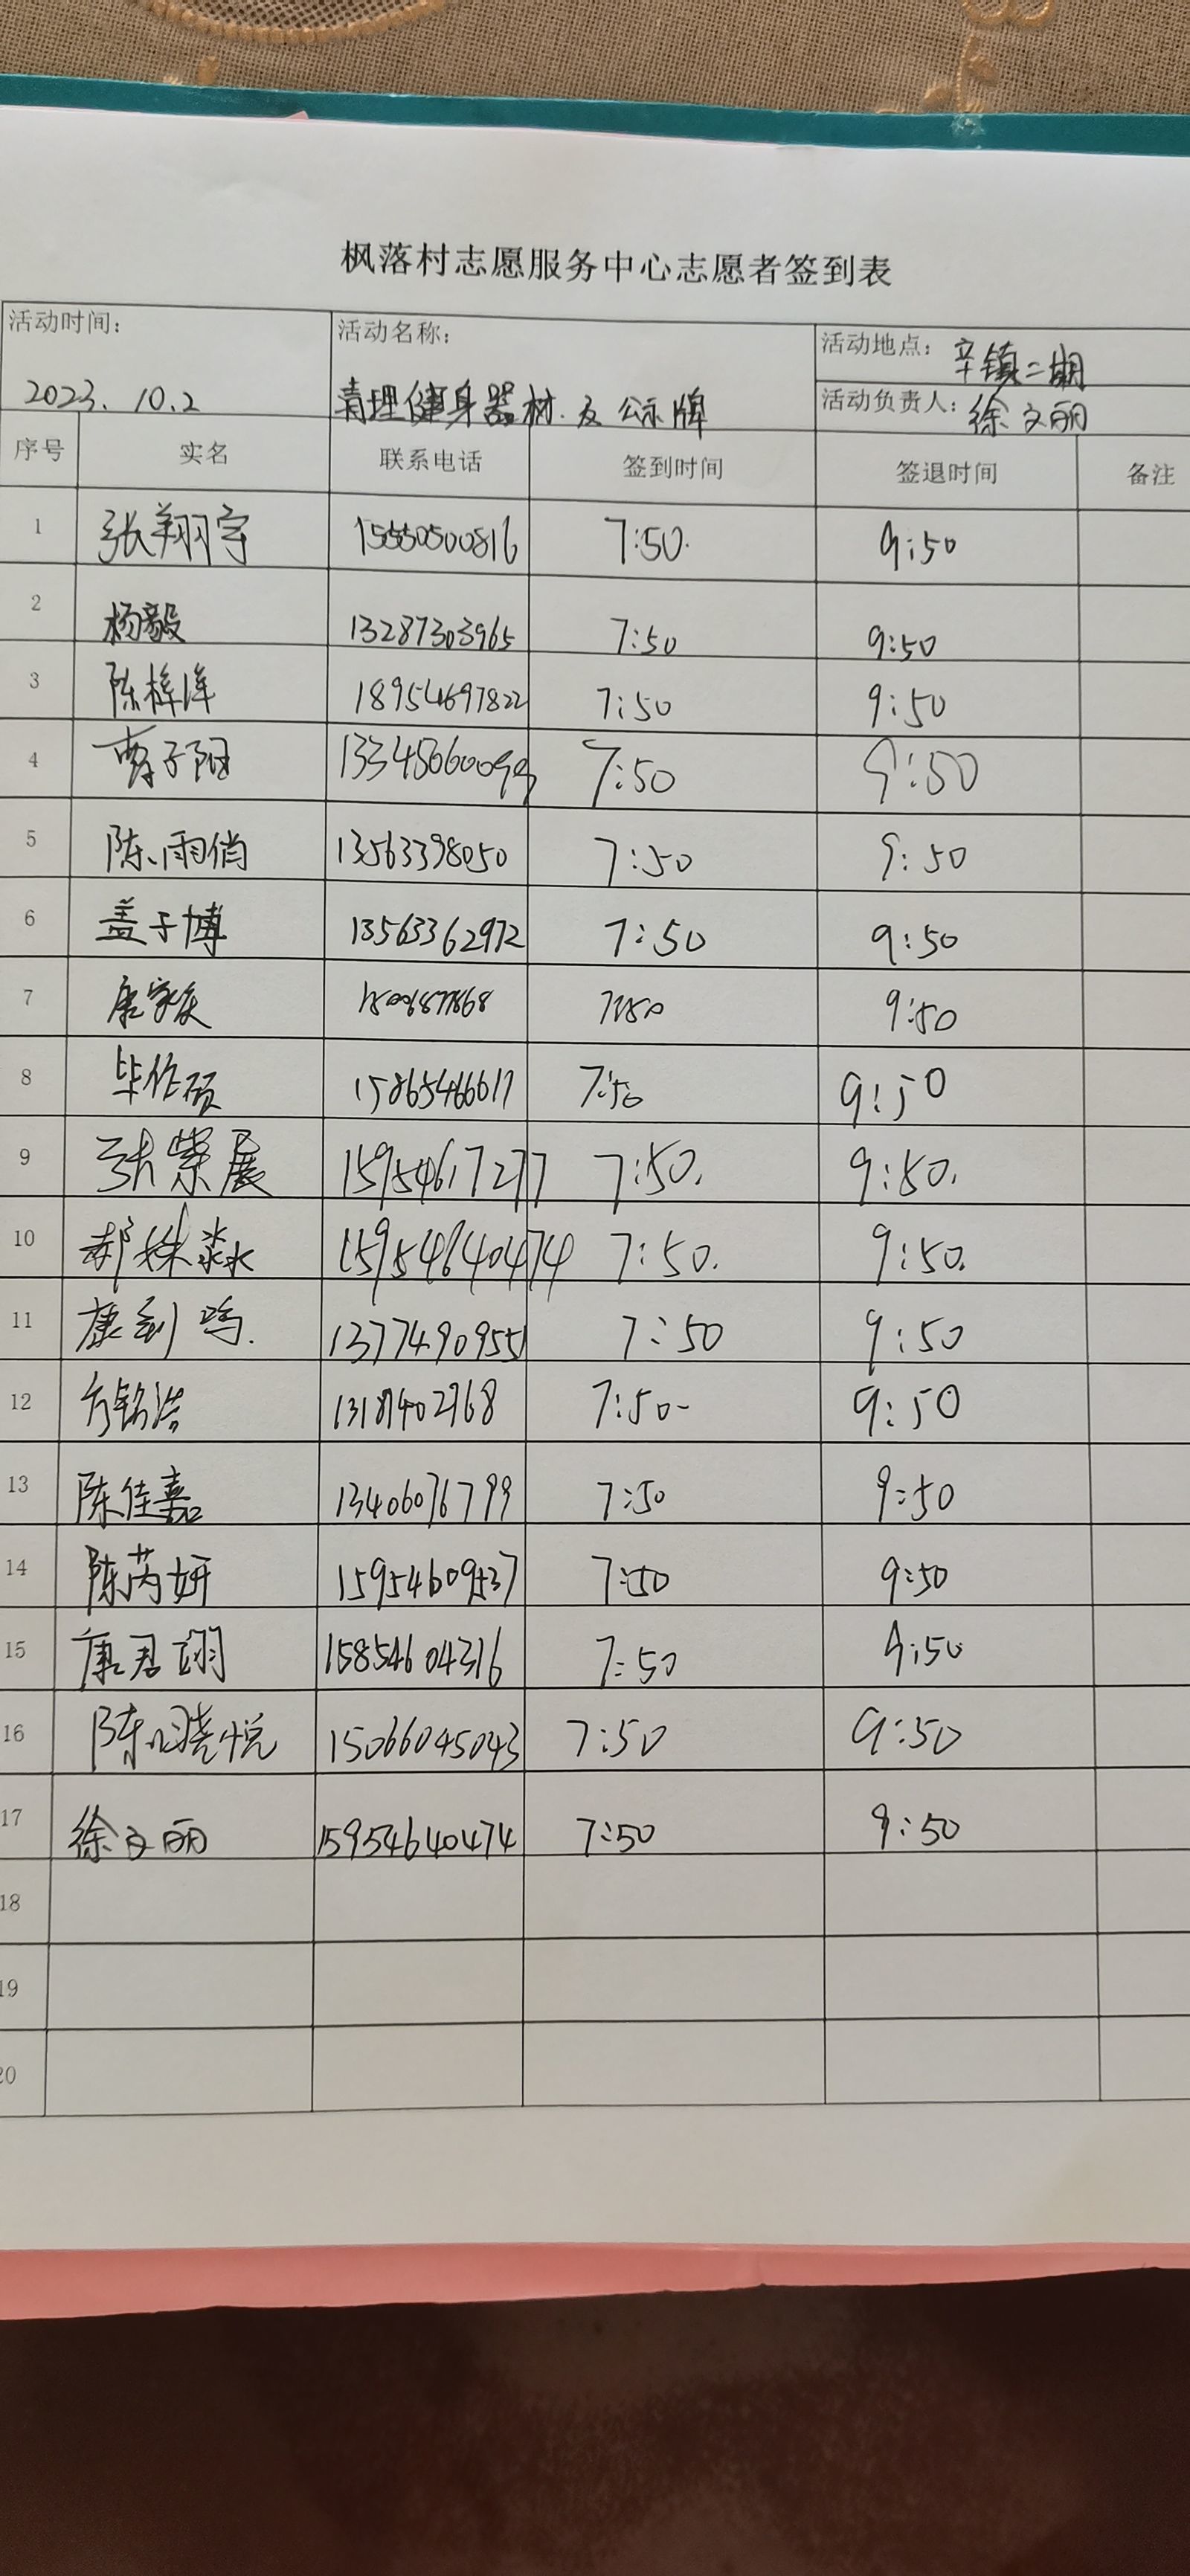 枫落村志愿服务中心志愿者签到表
活动时间： 2023.10.2
活动名称： 清理健身器材及公示牌
活动地点：辛镇二期
活动负责人：徐文丽
序号 实名 联系电话 签到时间 签退时间 备注
1 张翔宇 15550500816 7:50. 9:50
2 杨毅 13287303965 7:50 9:50
3 陈梓洋 18954697822 7:50 9:50
4 子阳 7:50 9:50
5 陈雨俏 13563398050 7:50 9:50
6 盖子博 13563362972 7:50 9:50
7 7:50 9:50
8 毕作硕 15865466617 7:50 9:50
9 张荣展 15954617277 7:50. 9:50.
10 郝姝淼 15954640474 7:50. 9:50.
11 康 7:50 9:50
12 方铭浩 7:50- 9:50
13 陈佳嘉 13406076799 7:50 9:50
14 陈芮妍 15954609537 7:50 9:50
15 康君翊 15854604316 7:50 9:50
16 陈晓悦 15066045043 7:50 9:50
17 徐文丽 15954640474 7:50 9:50
18
19
20